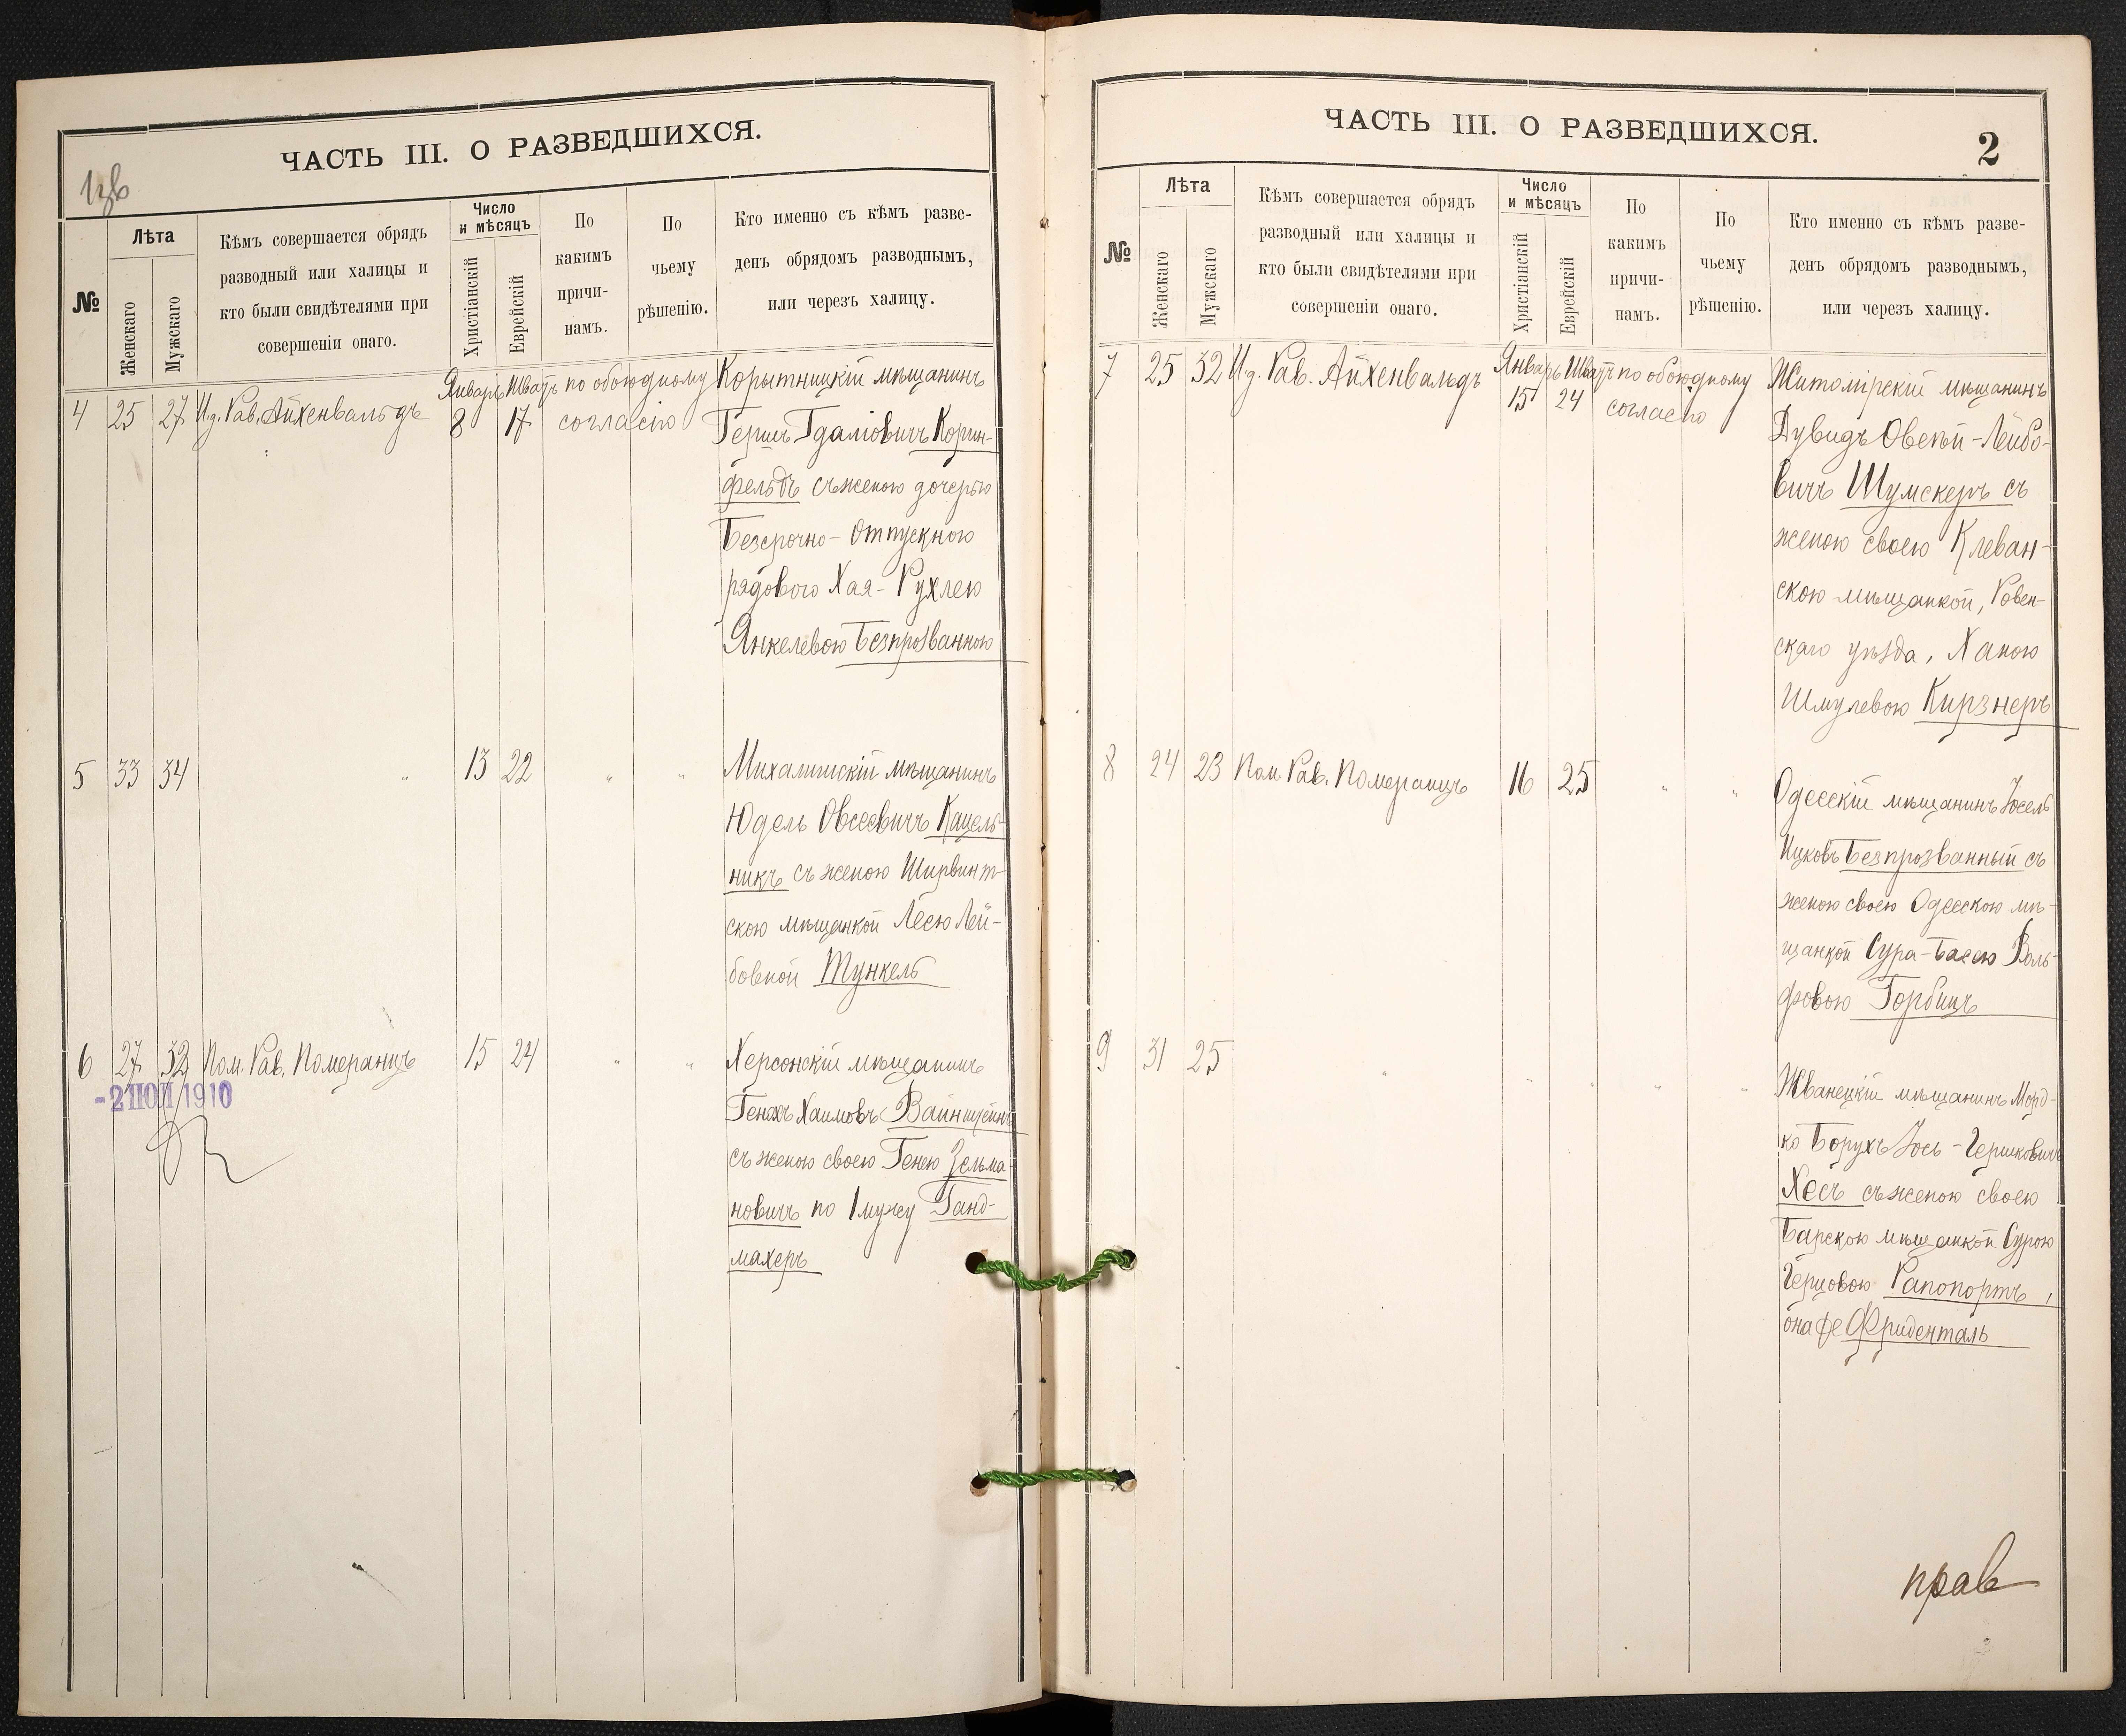 ЧАСТЬ III. О РАЗВЕДШИХСЯ.
№
Лѣта
Женскаго
Мужскаго
Кѣмъ совершается обрядъ
разводный или халицы и
кто были свидѣтелями при
совершеніи онаго.
Число
и мѣсяцъ
Христіанскій
Еврейскій
По
какимъ
причи-
намъ.
По
чьему
рѣшенію.
Кто именно съ кѣмъ разве-
денъ обрядомъ разводнымъ,
или черезъ халицу.
4 25 27 И.д. Рав. Айхенвальдъ
Январь Шватъ
8 17
по обоюдному
согласію
Корытницкій мѣщанинъ
Гершъ Гдаліовичъ Корин-
фельдъ съ женою дочерью
Безсрочно-Отпускного
рядового Хая-Рухлею
Янкелевою Безпрозванною
5 33 34 " 13 22 " "
Михалишскій мѣщанинъ
Юдель Овсеевичъ Кацель-
никъ съ женою Ширвинт-
скою мѣщанкой Лесю Лей-
бовной Тункель
6 27 32 Пом. Рав. Померанцъ 15 24 " "
Херсонскій мѣщанинъ
Генахъ Хаимовъ Вайнштейнъ
съ женою своею Генею Зельма-
новичъ по 1 мужу Ганд-
махеръ
-2 ІЮЛ 1910
ЧАСТЬ III. О РАЗВЕДШИХСЯ.
2
№
Лѣта
Женскаго
Мужскаго
Кѣмъ совершается обрядъ
разводный или халицы и
кто были свидѣтелями при
совершеніи онаго.
Число
и мѣсяцъ
Христіанскій
Еврейскій
По
какимъ
причи-
намъ.
По
чьему
рѣшенію.
Кто именно съ кѣмъ разве-
денъ обрядомъ разводнымъ,
или черезъ халицу.
7 25 32 И.д. Рав. Айхенвальдъ
Январь Шватъ
15 24
по обоюдному
согласію
Житомірскій мѣщанинъ
Дувидъ Овсѣй-Лейбо-
вичъ Шумскеръ съ
женою своею Клеван-
скою мѣщанкой, Ровен-
скаго уѣзда, Ханою
Шмулевою Кирзнеръ
8 24 23 Пом. Рав. Померанцъ 16 25 " "
Одесскій мѣщанинъ Іосель
Ицковъ Безпрозванный съ
женою своею Одесскою мѣ-
щанкой Сура-Басею Воль-
фовою Горбицъ
9 31 25 " " " " "
Жванецкій мѣщанинъ Морд-
ко Борухъ Іось-Гершковичъ
Хесъ съ женою своею
Барскою мѣщанкой Сурою
Герцовою Рапопортъ,
она же Фриденталь
прав